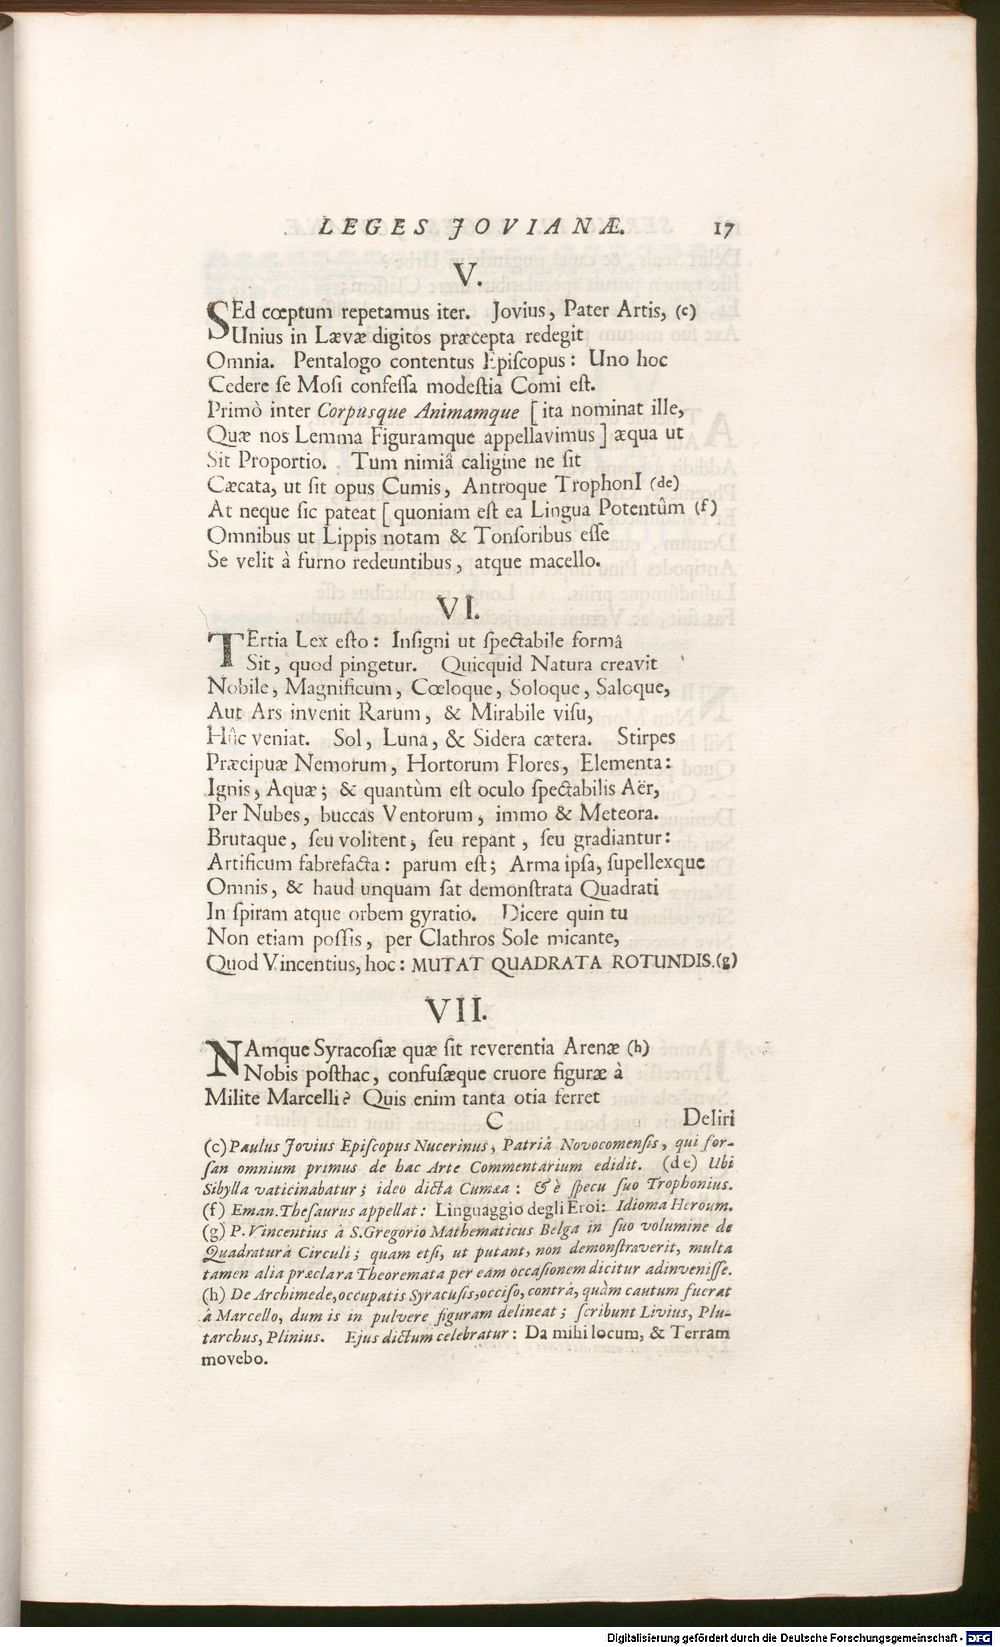 LEGES JOVIANÆ. 17
V.
SEd cœptum repetamus iter. Jovius, Pater Artis, (c)
Unius in Lævæ digitos præcepta redegit
Omnia. Pentalogo contentus Epiſcopus: Uno hoc
Cedere ſe Moſi confeſſa modeſtia Comi eſt.
Primò inter Corpusque Animamque [ita nominat ille,
Quæ nos Lemma Figuramque appellavimus] æqua ut
Sit Proportio. Tum nimiâ caligine ne ſit
Cæcata, ut ſit opus Cumis, Antroque TrophonI (de)
At neque ſic pateat [quoniam eſt ea Lingua Potentûm (f)
Omnibus ut Lippis notam & Tonſoribus eſſe
Se velit à furno redeuntibus, atque macello.
VI.
TErtia Lex eſto: Inſigni ut ſpectabile formâ
Sit, quod pingetur. Quicquid Natura creavit
Nobile, Magnificum, Cœloque, Soloque, Saloque,
Aut Ars invenit Rarum, & Mirabile viſu,
Hûc veniat. Sol, Luna, & Sidera cætera. Stirpes
Præcipuæ Nemorum, Hortorum Flores, Elementa:
Ignis, Aquæ; & quantùm eſt oculo ſpectabilis Aër,
Per Nubes, buccas Ventorum, immo & Meteora.
Brutaque, ſeu volitent, ſeu repant, ſeu gradiantur:
Artificum fabrefacta: parum eſt; Arma ipſa, ſupellexque
Omnis, & haud unquam ſat demonſtrata Quadrati
In ſpiram atque orbem gyratio. Dicere quin tu
Non etiam poſſis, per Clathros Sole micante,
Quod Vincentius, hoc: MUTAT QUADRATA ROTUNDIS.(g)
VII.
NAmque Syracoſiæ quæ ſit reverentia Arenæ (h)
Nobis poſthac, confuſæque cruore figuræ à
Milite Marcelli? Quis enim tanta otia ferret
C Deliri
(c) Paulus Jovius Epiſcopus Nucerinus, Patriâ Novocomenſis, qui for-
ſan omnium primus de hac Arte Commentarium edidit. (de) Ubi
Sibylla vaticinabatur; ideo dicta Cumæa: & è ſpecu ſuo Trophonius.
(f) Eman. Theſaurus appellat: Linguaggio degli Eroi: Idioma Heroum.
(g) P. Vincentius à S. Gregorio Mathematicus Belga in ſuo volumine de
Quadraturâ Circuli; quam etſi, ut putant, non demonſtraverit, multa
tamen alia præclara Theoremata per eam occaſionem dicitur adinveniſſe.
(h) De Archimede, occupatis Syracuſis, occiſo, contrà, quàm cautum fuerat
à Marcello, dum is in pulvere figuram delineat; ſcribunt Livius, Plu-
tarchus, Plinius. Ejus dictum celebratur: Da mihi locum, & Terram
movebo.
Digitalisierung gefördert durch die Deutsche Forschungsgemeinschaft - DFG